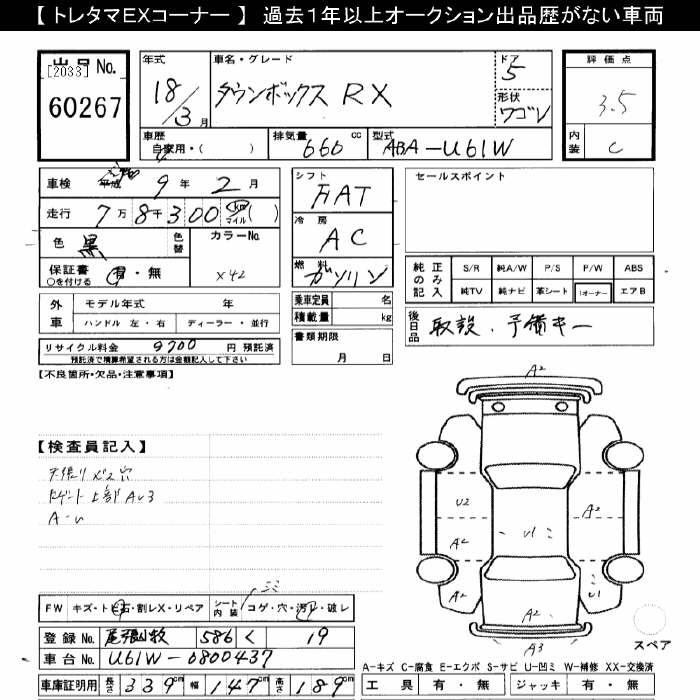 【 トレタマEXコーナー 】 過去1年以上オークション出品歴がない車両
出品 No.
[2033]
60267
年式
18/3月
車名・グレード
タウンボックス RX
ドア
5
形状
ワゴン
評価点
3.5
内装
C
車歴
自家用・( )
排気量 660 cc
型式 ABA-U61W
車検 平成 9年 2月
走行 7万 8千 300 km マイル ( )
色 黒
色替
カラーNo.
X42
保証書
○を付ける
有・無
外車
モデル年式 年
ハンドル 左・右
ディーラー・並行
リサイクル料金 9700 円 預託済
預託済で精算希望される方は金額記入して下さい
シフト
FAT
冷房
AC
燃料
ガソリン
乗車定員 名
積載量 kg
書類期限
月 日
セールスポイント
純正のみ記入
S/R 純A/W P/S P/W ABS
純TV 純ナビ 革シート 1オーナー エアB
後日品 取説、予備キー
【不良箇所・欠品・注意事項】
【検査員記入】
天張り ビス穴
上部 AU3
A-U
A2
U2
A2
A2
U1
U1
A2
A2
A3
スペア
FW キズ・トビ石・割レX・リペア
シート内装 コゲ・穴・汚レ・破レ
登録No. 尾張小牧 586 く 19
車台No. U61W-0800437
車庫証明用 長さ 339cm 幅 147cm 高さ 189cm
A-キズ C-腐食 E-エクボ S-サビ U-凹ミ W-補修 XX-交換済
工具 有・無 ジャッキ 有・無